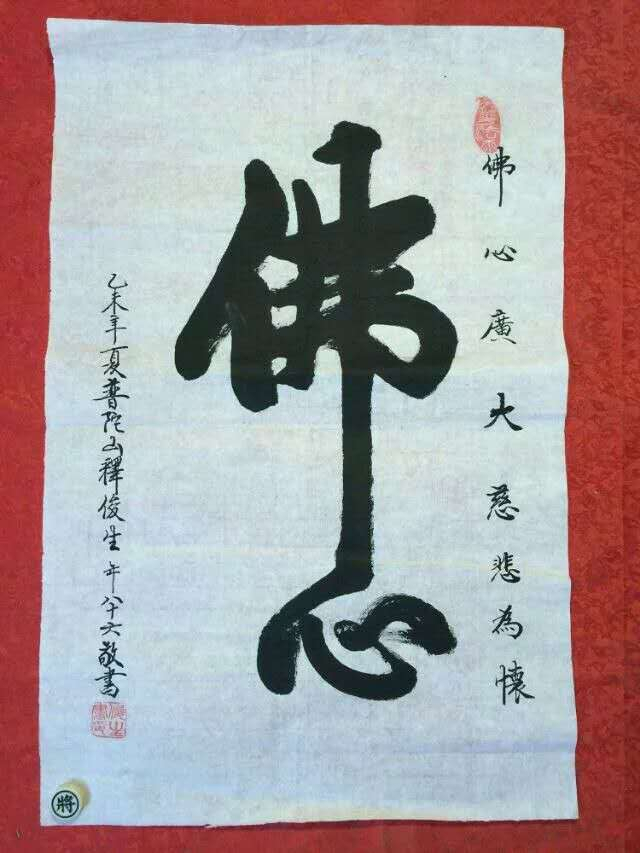 佛心廣大慈悲為懷
佛心
乙未年夏普陀山釋俊生年八十六敬書
將